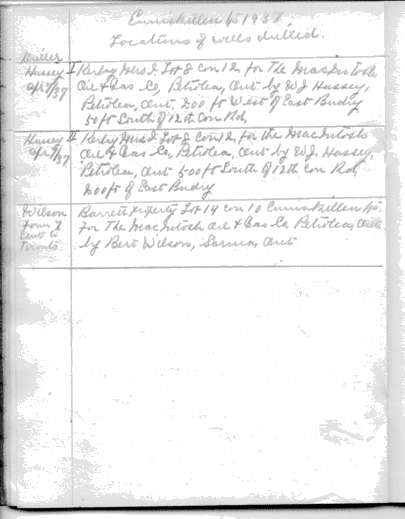 Enniskillen Tp 1937
Locations of wells drilled.
Driller
Hussey I Kerby Mrs J Lot 8 Con 12, for The MacIntosh
Apr /37 Oil & Gas Co, Petrolea, Ont by W J Hussey,
Petrolea, Ont, 200 ft West of East Bndry
50 ft South of 12th Con Rd,
Hussey II Kerby Mrs J Lot 8 Con 12, for the MacIntosh
Apr /37 Oil & Gas Co, Petrolea, Ont by W.J. Hussey,
Petrolea, Ont 500 ft South of 12th Con Rd,
200 ft of East Bndry
Wilson Barrett Property Lot 14 Con 10 Enniskillen Tp.
Form I For The MacIntosh Oil & Gas Co Petrolea, Ont,
Sent to by Bert Wilson, Sarnia, Ont
Toronto